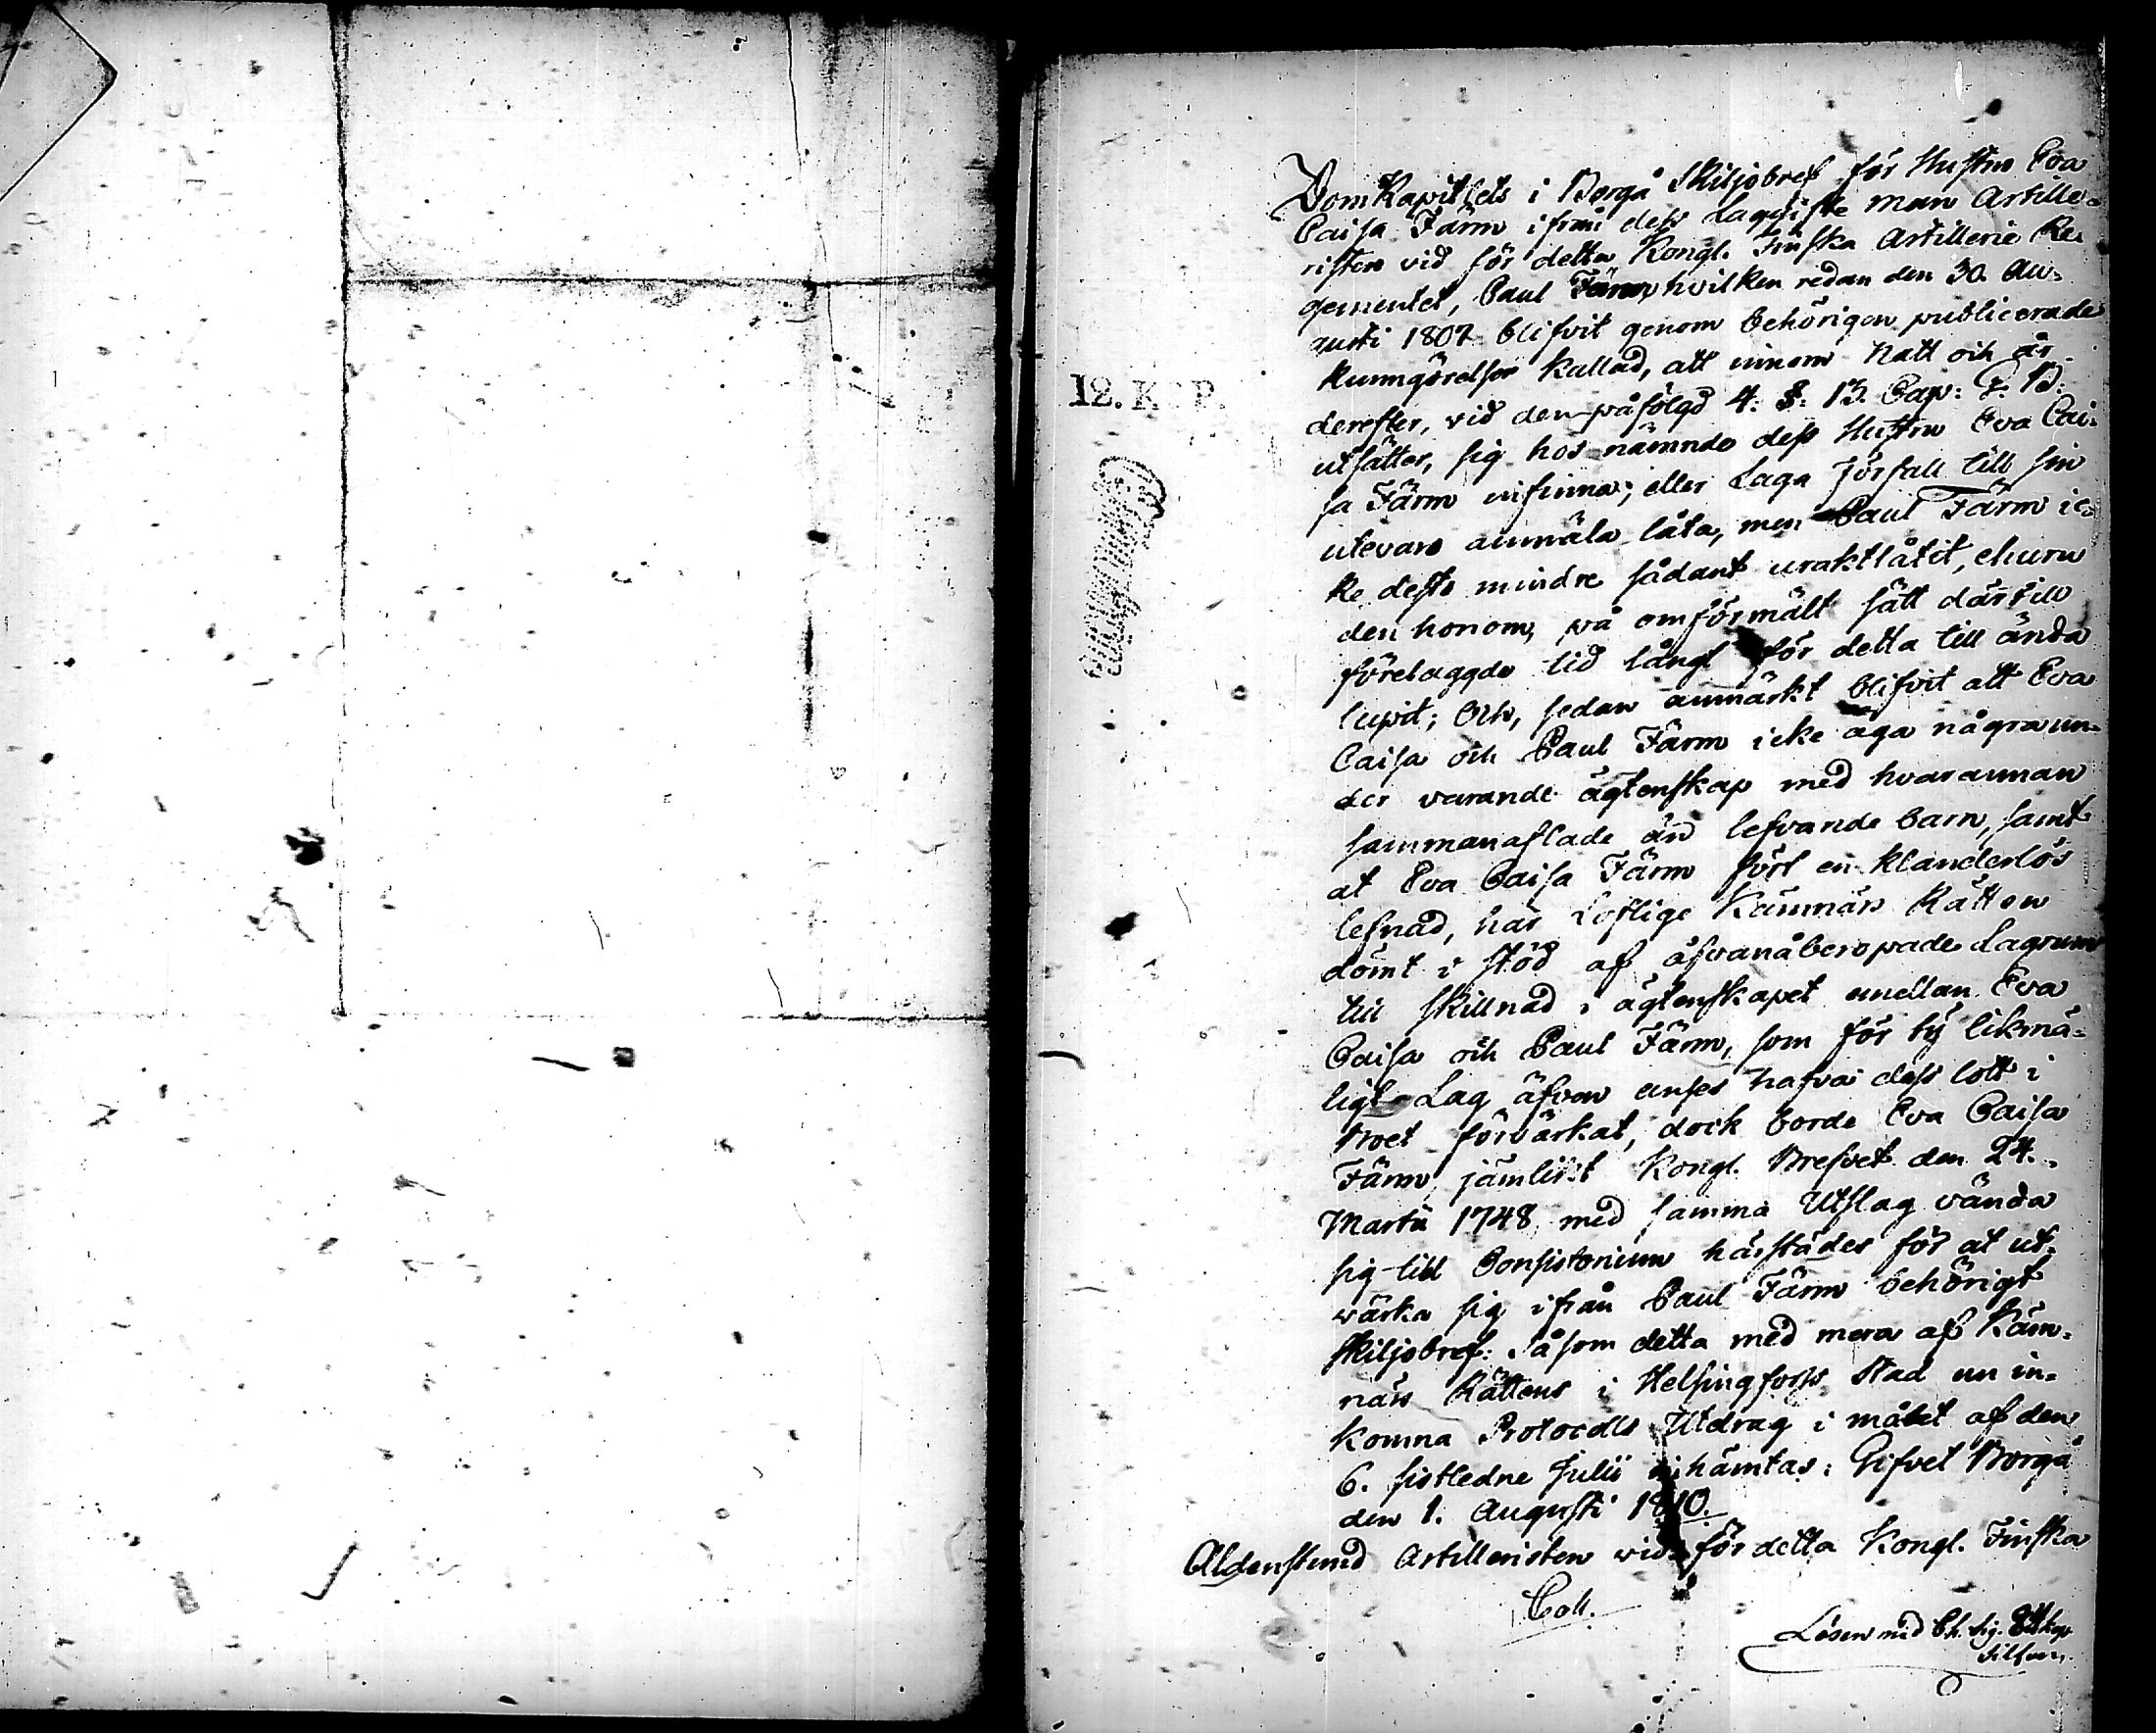 DomKapitlets i Borgå Skiljobref för Hustru Eva
Caisa Färm ifrån dess Laggifte man Artille-
risten vid för detta Kongl. Finska Artillerie Re-
gementet, Paul Färm hvilken redan den 30. Au-
gusti 1807 blifvit genom behörigen publicerade
kunngörelser kallad, att innom Natt och år
derefter, vid den påfölgd 4. §. 13. Cap: G. B.
12. KOP.
utsätter, sig hos nämnde dess Hustru Eva Cai-
sa Färm infinna; eller Laga förfall till sin
utevaro anmäla låta, men Paul Färm ic-
ke desto mindre sådant uraktlåtit, ehuru
den honom, på omförmält sätt därtill
förelaggde tid långt för detta till ända
lupit; Och, sedan anmärkt blifvit att Eva
Caisa och Paul Färm icke äga några un-
der varande ägtenskap med hvarannan
sammanaflade än lefvande barn, samt
at Eva Caisa Färm fört en klanderlös
lefnad, har Loflige Kämnärs Rätten
dömt i stöd af åfvanåberopade Lagrum
till skillnad i ägtenskapet emellan Eva
Caisa och Paul Färm, som för ty likmä-
ligt Lag äfven anses hafva dess lott i
Boet förvärkat, dock borde Eva Caisa
Färm jämlikt Kongl. Brefvet den 24.
Martii 1748 med samma Utslag vända
sig till Consistorium härstädes för at ut-
wärka sig ifrån Paul Färm behörigt
Skiljobref: Såsom detta med mera af Käm-
närs Rättens i Helsingfors Stad un in-
komna Protocolls Utdrag i målet af den
6. sistledne Julii inhämtas; Gifvet Borgå
den 1. Augusti 1810.
Aldenstund Artilleristen wid för detta Kongl. Finska
Coll.
Lösen med Ch. Sig.